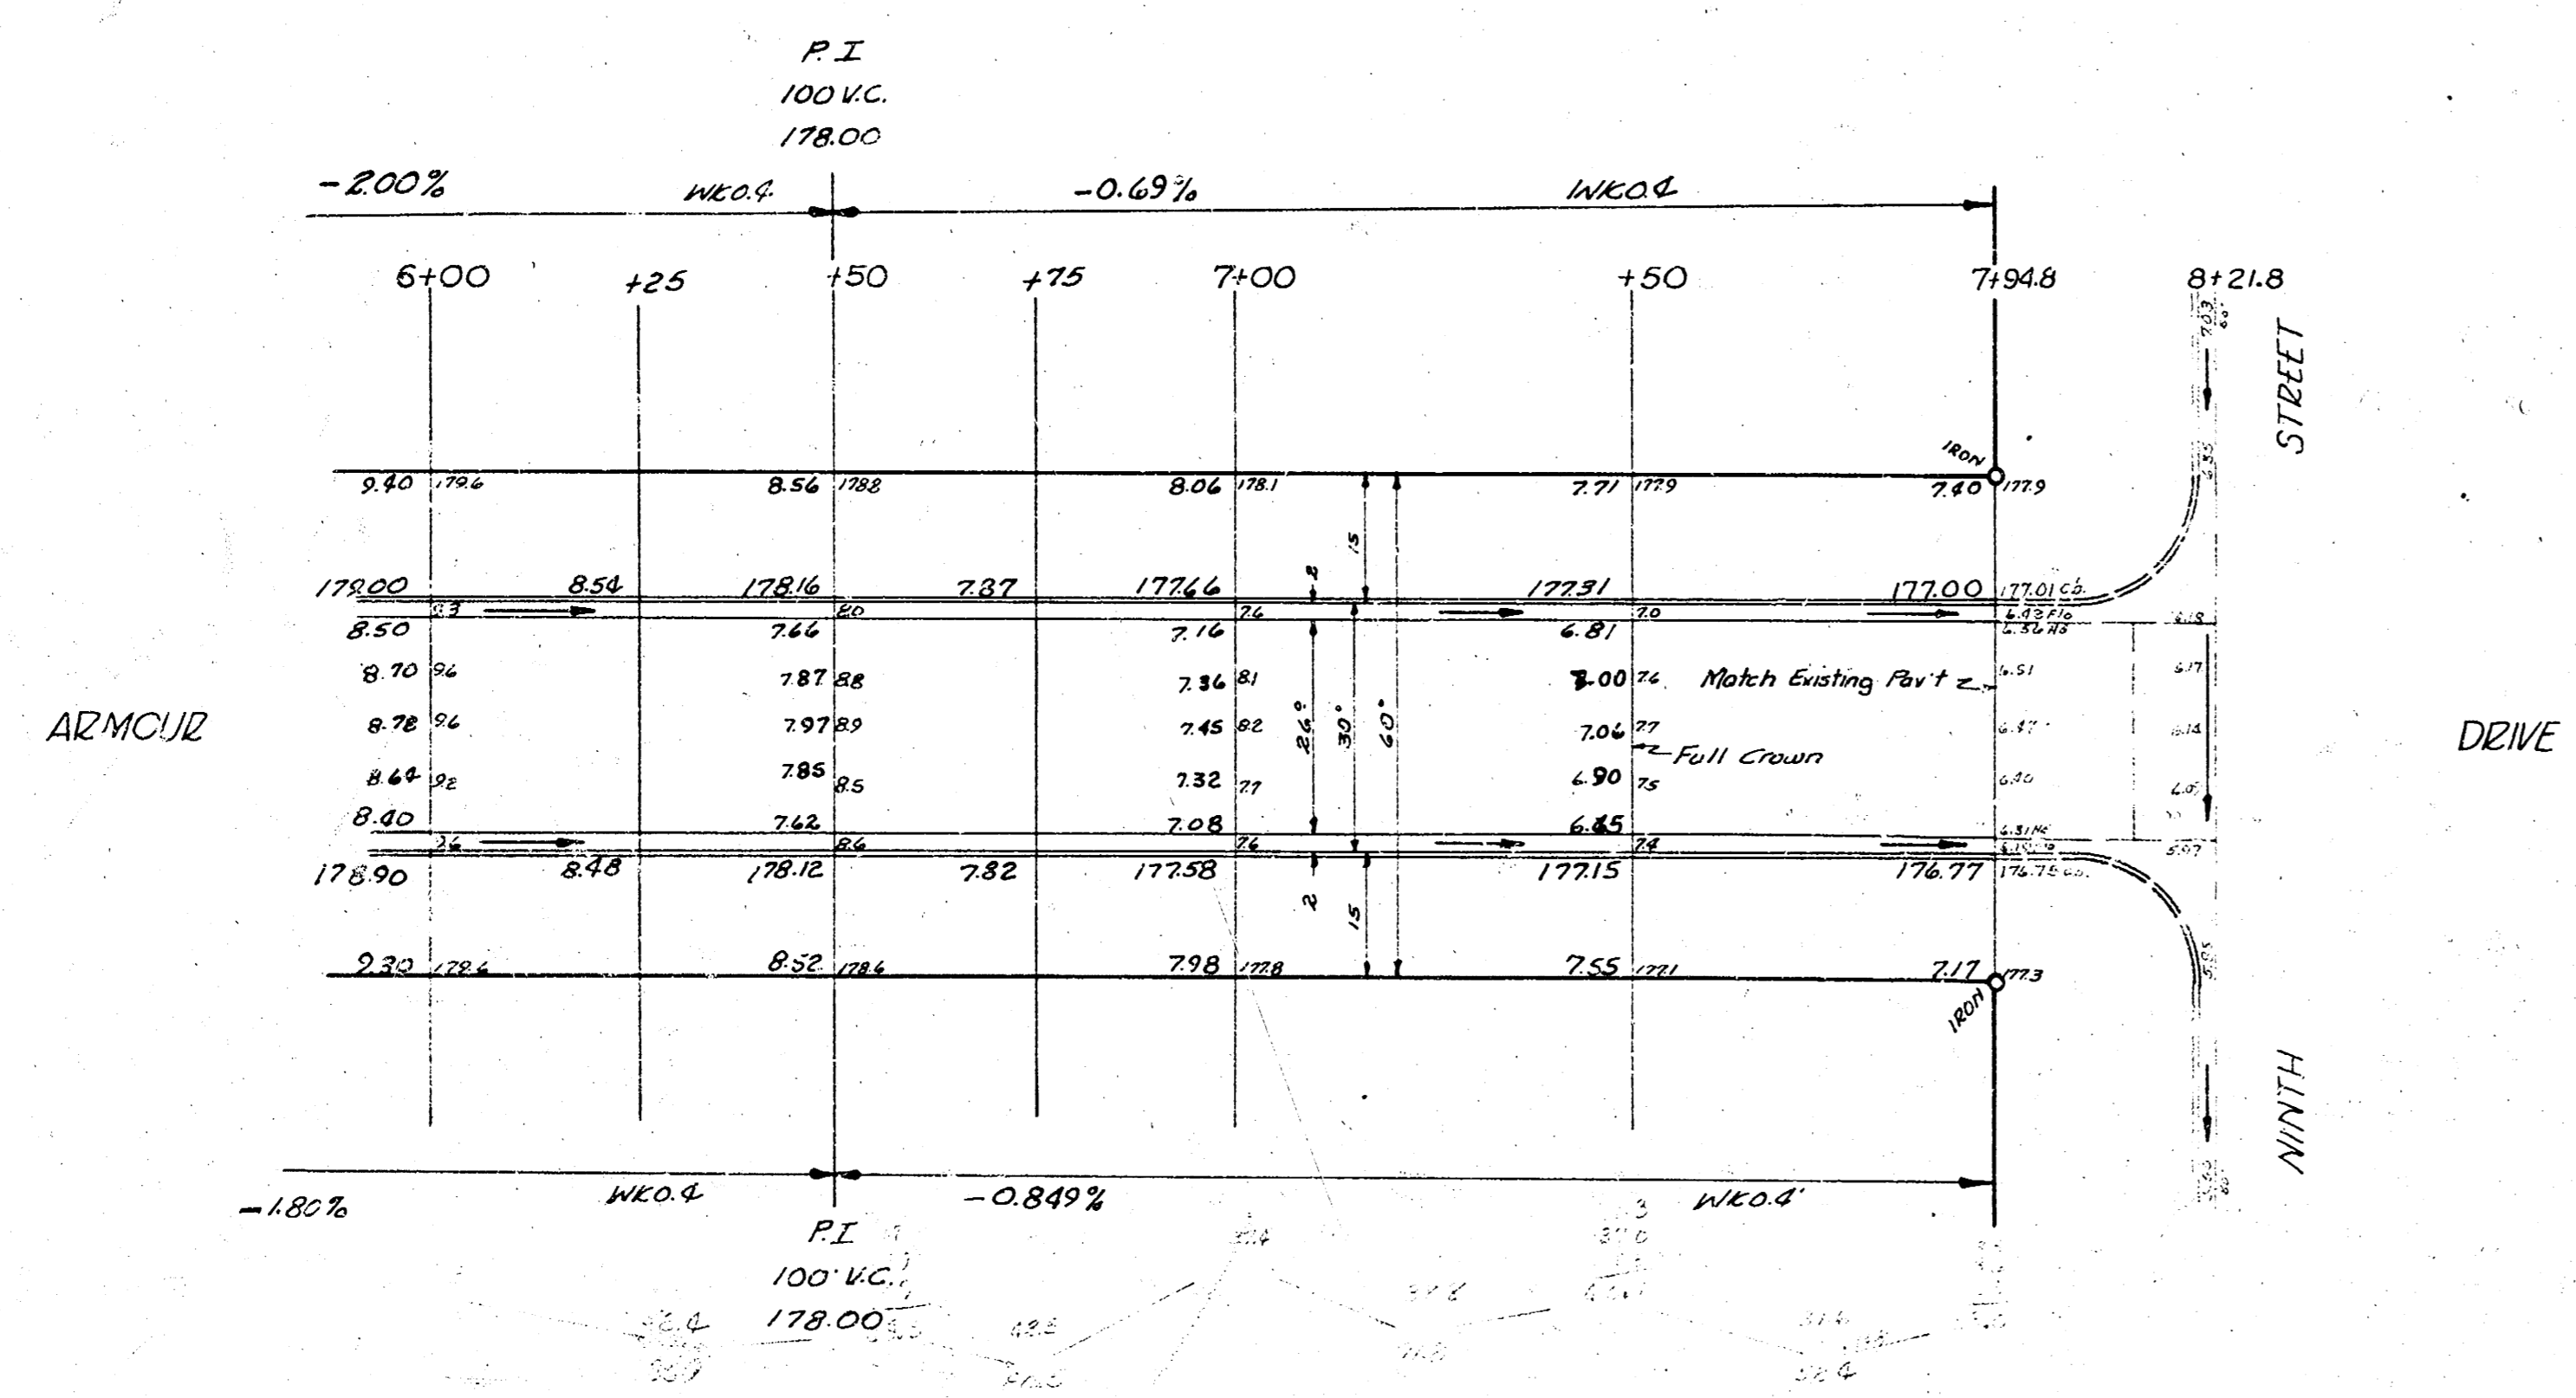 P.I
100 V.C.
178.00
-2.00% WK0.4 -0.69% WK0.4
6+00 +25 +50 +75 7+00 +50 7+94.8 8+21.8
7.03
STREET
IRON
9.40 179.6 8.56 178.8 8.06 178.1 7.71 177.9 7.40 177.9
15
2
179.00 8.54 178.16 7.87 177.66 177.31 177.00 177.01 Cb.
9.3 8.0 7.6 7.0 6.42 Flo
8.50 7.66 7.16 6.81 6.18
8.70 9.6 7.87 8.8 7.36 8.1 7.00 7.6 Match Existing Pav't 6.51 6.17
ARMOUR 8.78 9.6 7.97 8.9 7.45 8.2 26° 30° 60° 7.06 7.7 6.47 6.14 DRIVE
Full Crown
8.64 9.2 7.85 8.5 7.32 7.7 6.90 7.5 6.40
8.40 7.62 7.08 6.65 6.31
9.6 8.6 7.6 7.4 5.97
178.90 8.48 178.12 7.82 177.58 177.15 176.77 176.75 Cb.
2 15
9.30 179.6 8.52 178.6 7.98 177.8 7.55 177.1 7.17 177.3
IRON
NINTH
-1.80% WK0.4 -0.849% WK0.4'
P.I
100' V.C.
178.00